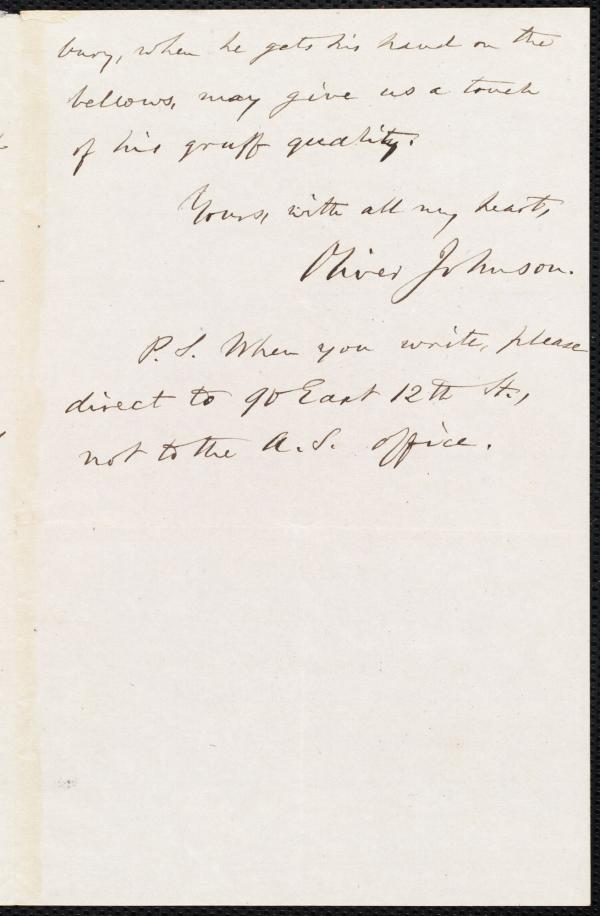 bury, when he gets his hand on the
bellows, may give us a touch
of his gruff quality.
Yours, with all my heart,
Oliver Johnson.
P.S. When you write, please
direct to 90 East 12th St.,
not to the A.S. office.